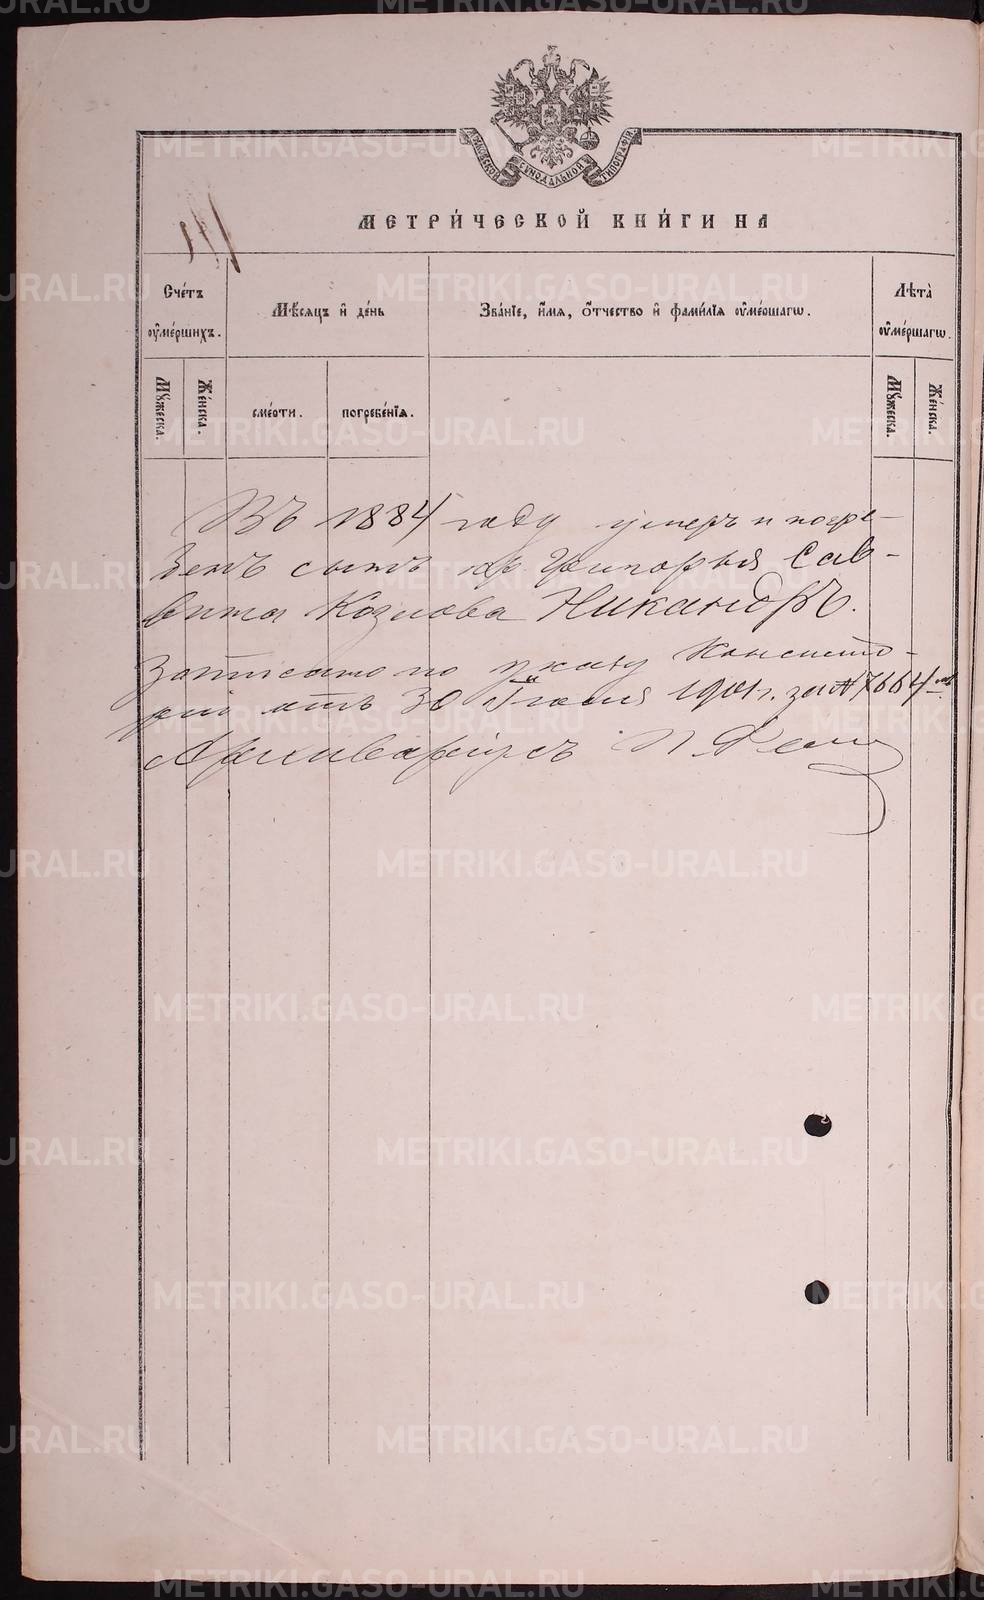 METRIKI.GASO-URAL.RU
МОСКОВСКОЙ СѴНОДАЛЬНОЙ ТИПОГРАФІИ
МЕТРИ́ЧЕСКОЙ КНИ́ГИ НА
Сче́тъ оу҆ме́ршихъ.
Мѣ́сяцъ и҆ де́нь
Зва́нїе, и҆́мя, ѻ҆́тчество и҆ фами́лїя оу҆ме́ршагѡ.
Лѣ́та оу҆ме́ршагѡ.
Мꙋ́жеска.
Же́нска.
сме́рти.
погребе́нїя.
Мꙋ́жеска.
Же́нска.
Въ 1884 году умеръ и погре-
бенъ сынъ кр Григорья Сав-
вина Козлова Никандръ.
Записано по указу Консисто-
ріи отъ 30 Іюля 1901 г. за № 7664
Архиваріусъ П.